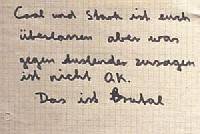 Cool und Stark ist euch
überlassen aber was
gegen Auslender zusagen
ist nicht O.K.
Das ist Brutal